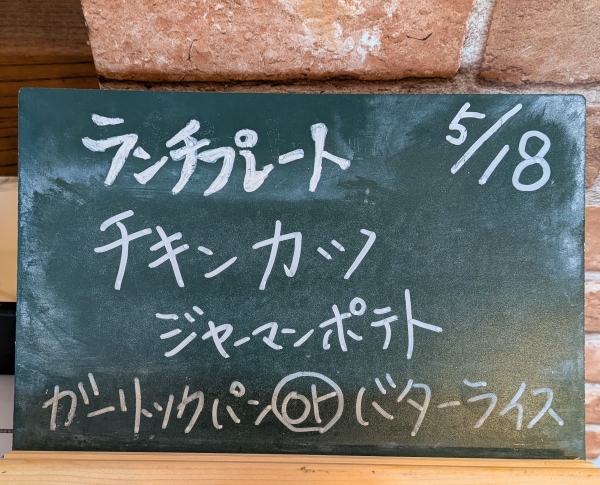 ランチプレート 5/18
チキンカツ
ジャーマンポテト
ガーリックパン or バターライス